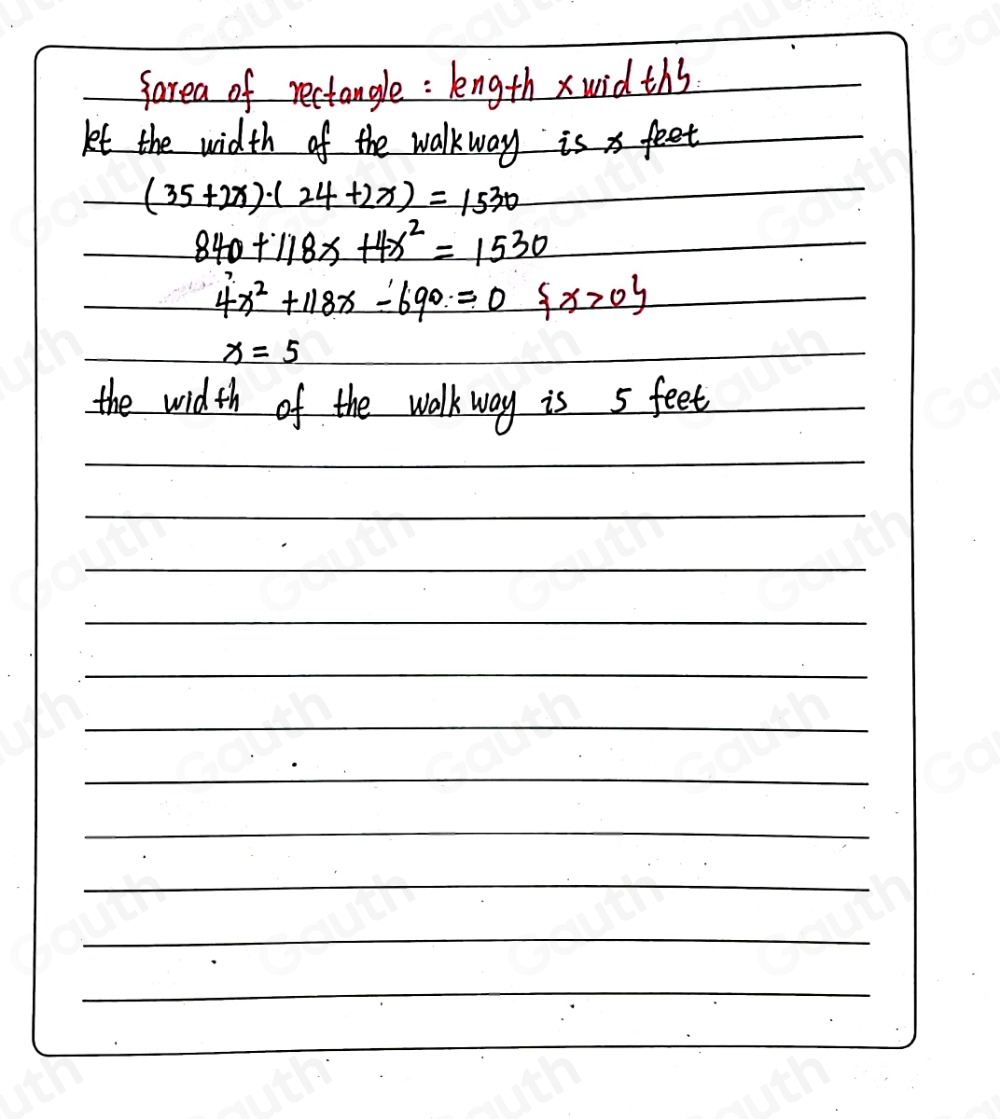 {area of rectangle : length × width}
let the width of the walkway is x feet
(35+2x)·(24+2x) = 1530
840+118x+4x² = 1530
4x²+118x-690=0 {x>0}
x = 5
the width of the walkway is 5 feet